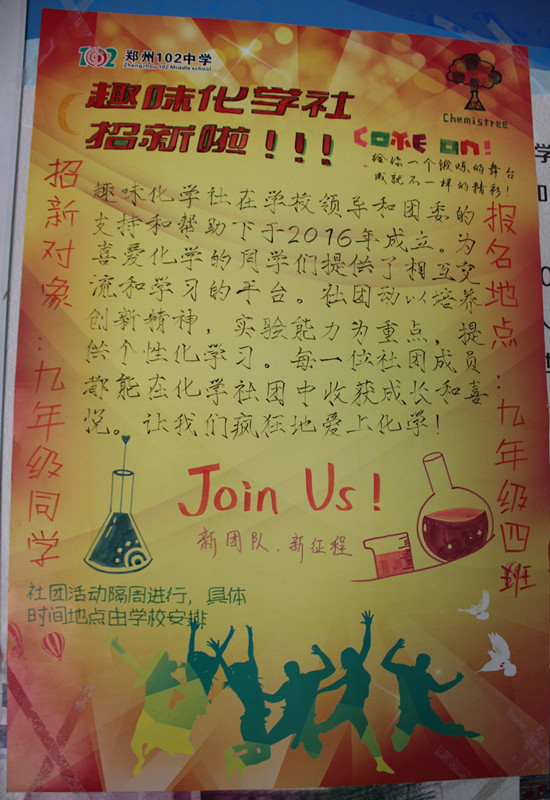 102 郑州102中学
Zhengzhou 102 Middle school
趣味化学社
招新啦！！！
Chemistree
COME ON!
给你一个锻炼的舞台
成就不一样的精彩！
招新对象：九年级同学
趣味化学社在学校领导和团委的
支持和帮助下于2016年成立。为
喜爱化学的同学们提供了相互交
流和学习的平台。社团动以培养
创新精神，实验能力为重点，提
供个性化学习。每一位社团成员
都能在化学社团中收获成长和喜
悦。让我们疯狂地爱上化学！
报名地点：九年级四班
Join Us!
新团队、新征程
社团活动隔周进行，具体
时间地点由学校安排